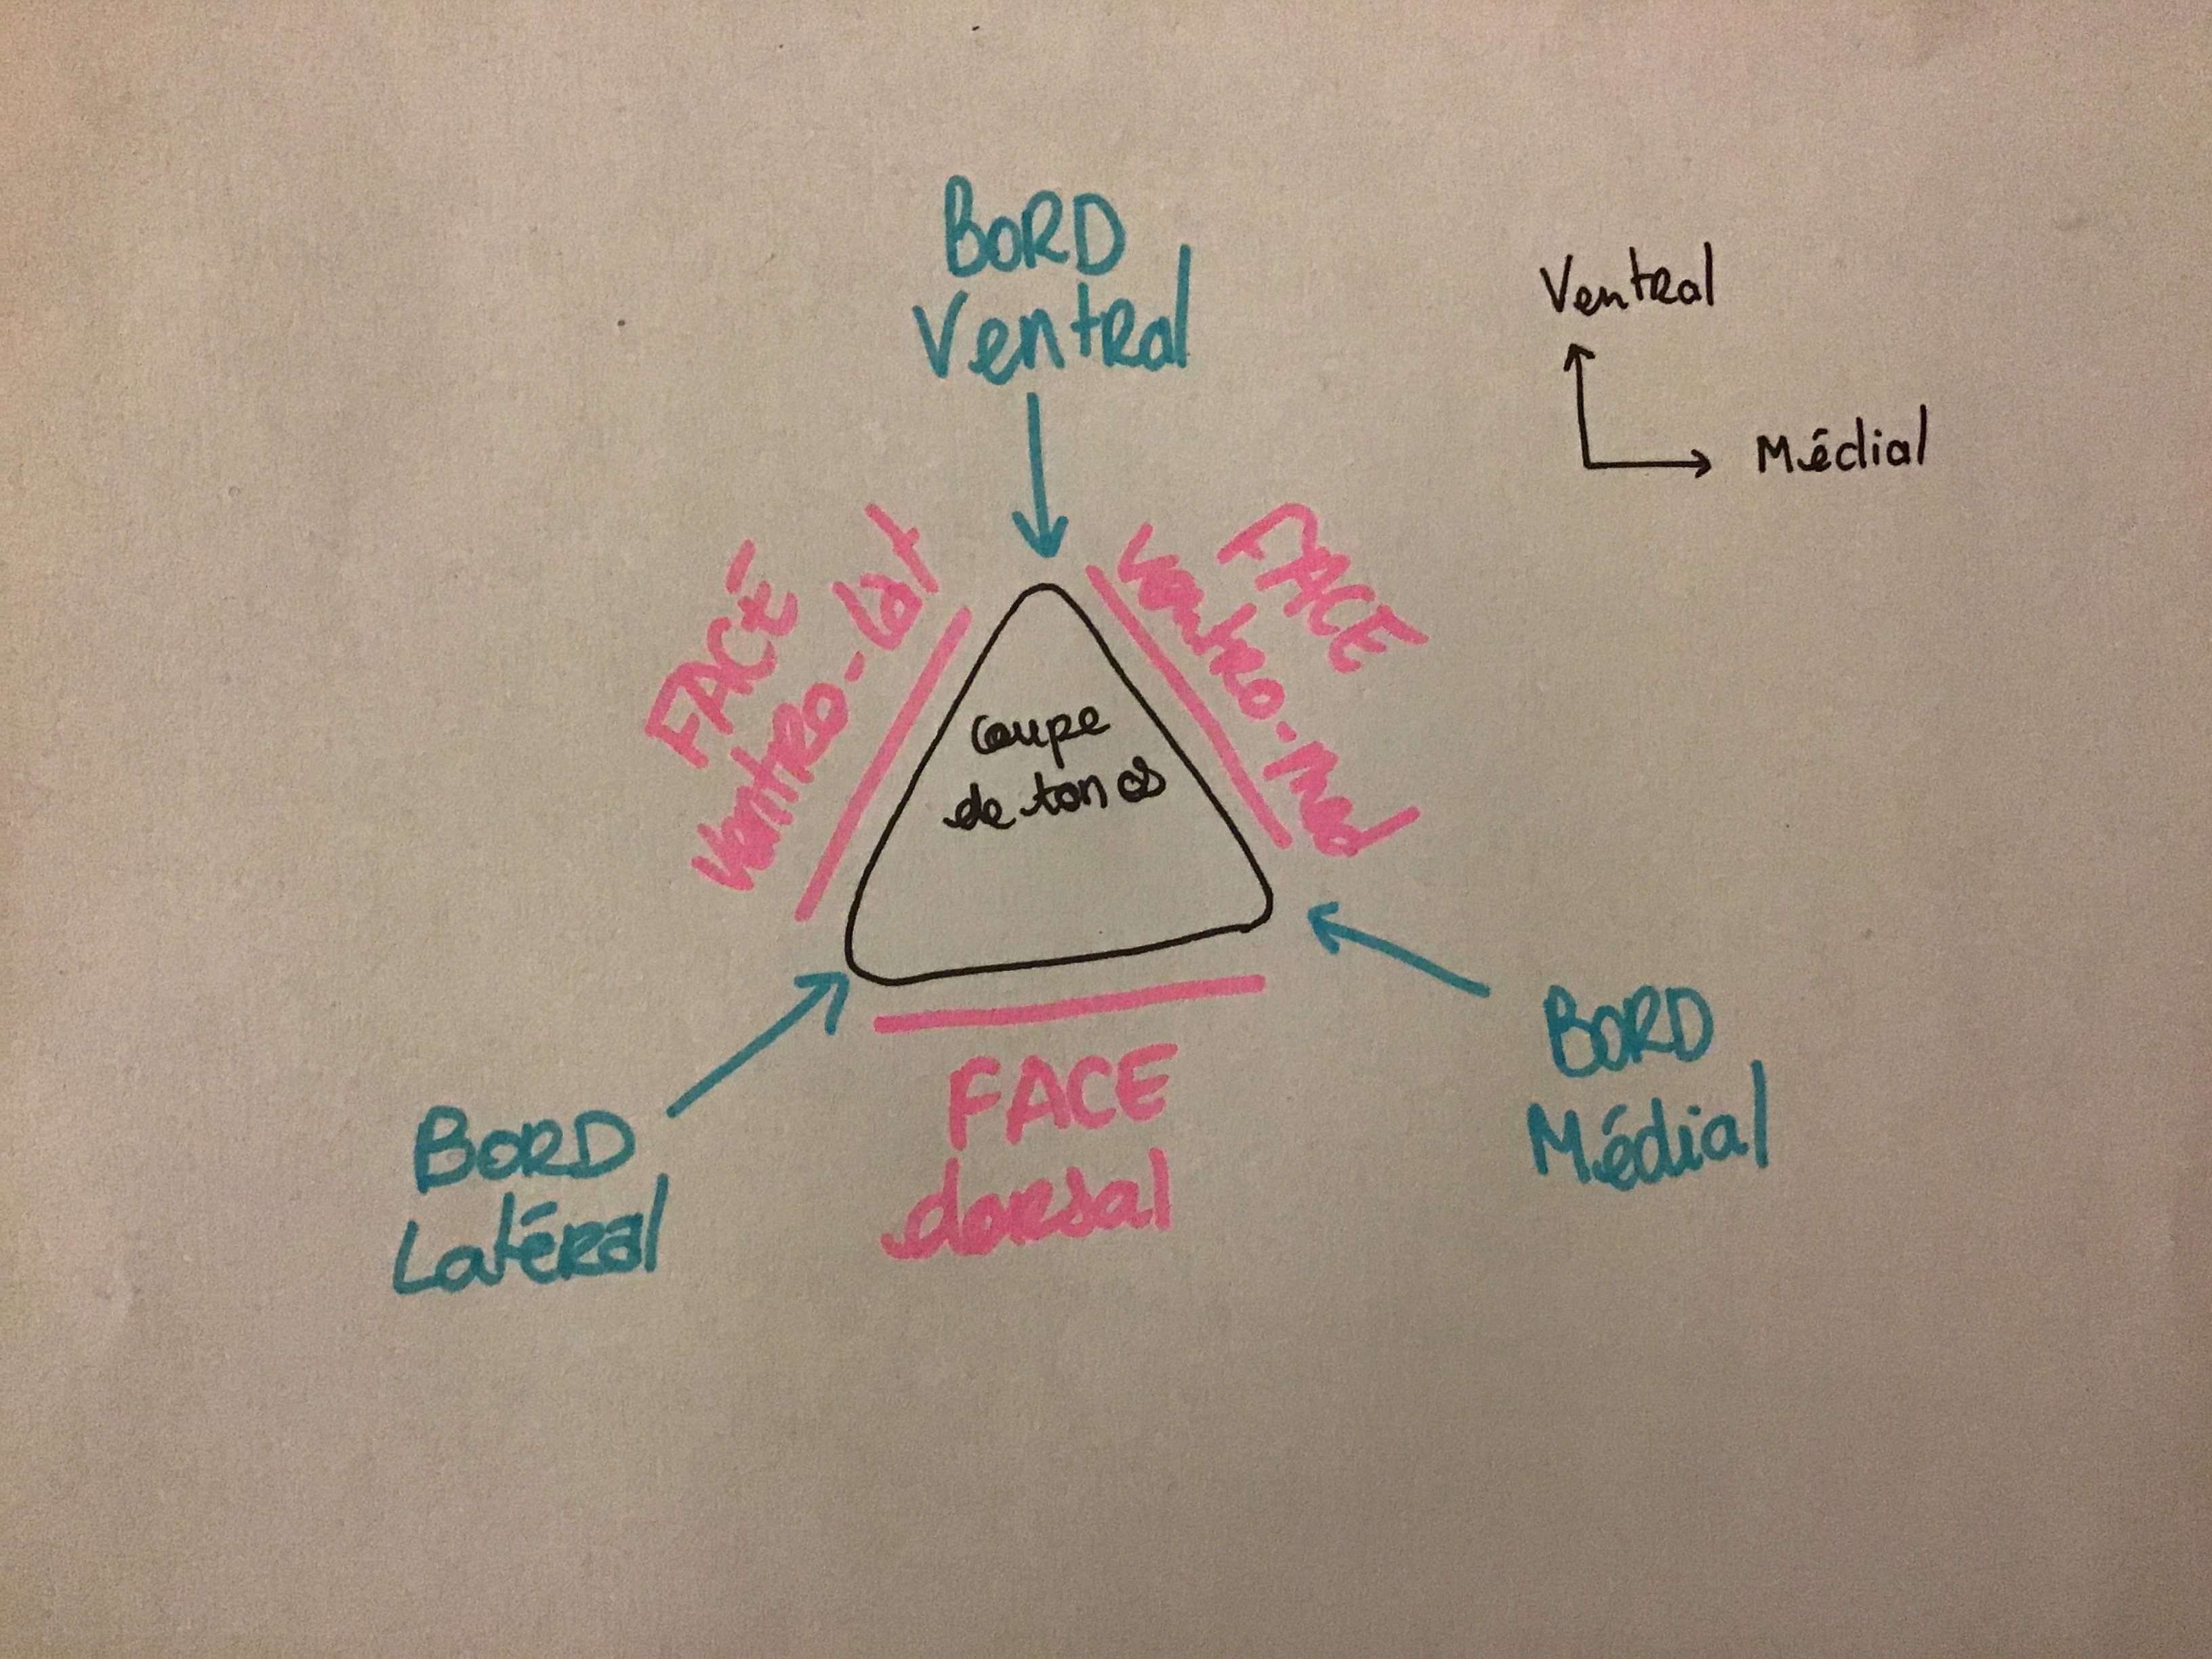 BORD
Ventral
Ventral
Médial
FACE
ventro-lat
FACE
ventro-med
coupe
de ton os
BORD
Médial
FACE
dorsal
BORD
Latéral